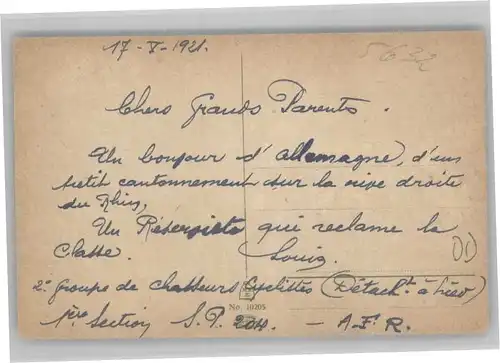 17 - V - 1921.
5632
Chers Grands Parents.
Un bonjour d'Allemagne, d'un
petit cantonnement sur la rive droite
du Rhin,
Un Réserviste qui reclame la
Classe. Louis.
2e Groupe de chasseurs Cyclistes (Détacht à
No. 10205
1ère Section S.P. 204. - A.F.R.